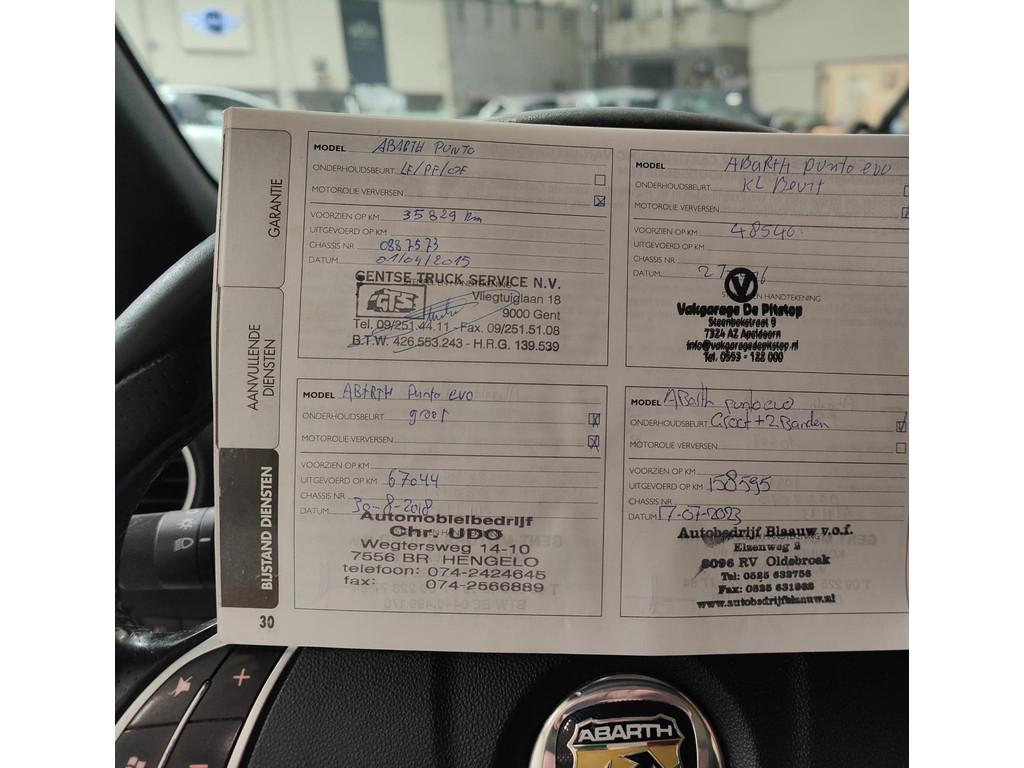 GARANTIE
AANVULLENDE
DIENSTEN
BIJSTAND DIENSTEN
30
MODEL ABARTH PUNTO
ONDERHOUDSBEURT LF/PF/OF
MOTOROLIE VERVERSEN
VOORZIEN OP KM 35829 km
UITGEVOERD OP KM
CHASSIS NR 0887573
DATUM 01/04/2015
GENTSE TRUCK SERVICE N.V.
GTS
Vliegtuiglaan 18
9000 Gent
Tel. 09/251.44.11 - Fax. 09/251.51.08
B.T.W. 426.553.243 - H.R.G. 139.539
MODEL ABarth punto evo
ONDERHOUDSBEURT KL Beurt
MOTOROLIE VERVERSEN
VOORZIEN OP KM 48540
UITGEVOERD OP KM
CHASSIS NR
DATUM
HANDTEKENING
Vakgarage De Pitstop
Steenbokstraat 9
7324 AZ Apeldoorn
info@vakgaragedepitstop.nl
Tel. 0553 - 122 000
MODEL ABARTH Punto evo
ONDERHOUDSBEURT groot
MOTOROLIE VERVERSEN
VOORZIEN OP KM
UITGEVOERD OP KM 67044
CHASSIS NR
DATUM 30-8-2018
Automobielbedrijf
Chr. UDO
Wegtersweg 14-10
7556 BR HENGELO
telefoon: 074-2424645
fax: 074-2566889
MODEL ABarth punto evo
ONDERHOUDSBEURT Groot + 2 Banden
MOTOROLIE VERVERSEN
VOORZIEN OP KM
UITGEVOERD OP KM 158595
CHASSIS NR
DATUM 17-07-2023
Autobedrijf Blaauw v.o.f.
Eizenweg 2
8096 RV Oldebroek
Tel: 0525 632756
Fax: 0525 631982
www.autobedrijfblaauw.nl
ABARTH